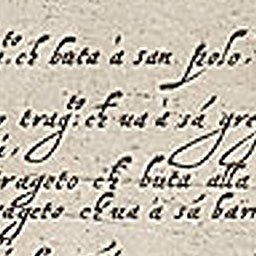 t.to ch buta à san polo,
trag:to ch ua à sà gre
trageto ch buta alla
trageto ch ua à sà barn